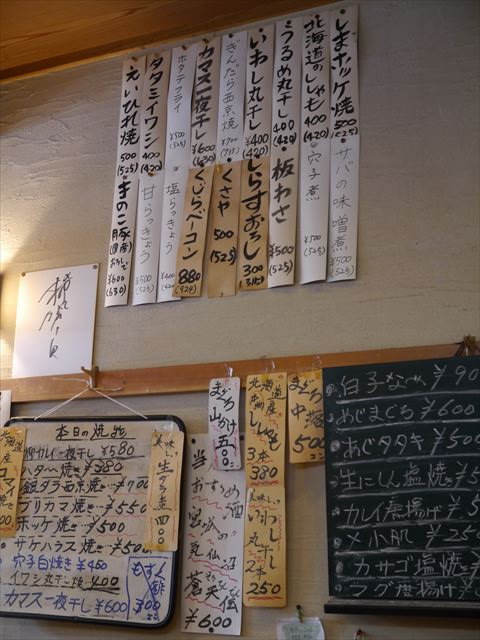 しまホッケ焼 500 (525)
北海道のししゃも 400 (420)
うるめ丸干し 400 (420)
いわし丸干し ¥400 (420)
ぎんだら西京焼 ¥700 (735)
カマス一夜干し ¥600 (630)
ホタテフライ ¥500 (525)
タタミイワシ 400 (420)
えいひれ焼 500 (525)
サバの味噌煮 ¥500 (525)
穴子煮 ¥500 (525)
板わさ ¥500 (525)
しらすおろし 300 (315)
くさや 500 (525)
くじらベーコン 880 (924)
塩らっきょう ¥400 (420)
甘らっきょう ¥500 (525)
きのこ ¥600 (630)
まぐろ山かけ 五〇〇
北海道産 本物 ししゃも 3本 380
美味しい いわし丸干し 2本 250
まぐろ中落 500
当店おすすめ酒
宮城の気仙沼
蒼天伝
¥600
本日の焼物
柳カレイ一夜干し ¥580
ハタハタ焼き ¥380
銀ダラ西京焼 ¥700
ブリカマ焼 ¥550
ホッケ焼 ¥500
サケハラス焼 ¥500
穴子白焼き ¥450
イワシ丸干し焼 400
カマス一夜干し ¥600
もずく酢 300
美味しい 生タラ煮 四〇〇
白子なべ ¥90
めじまぐろ ¥600
あじタタキ ¥500
生にしん塩焼 ¥5
カレイ唐揚げ ¥5
〆小肌 ¥250
カサゴ塩焼 ¥
フグ唐揚げ ¥